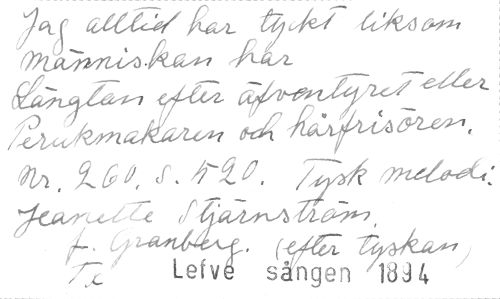 Jag alltid har tyckt liksom
människan har
Längtan efter äfventyret eller
Perukmakaren och hårfrisören.
Nr. 260. s. 520. Tysk melodi.
Jeanette Stjärnström
f. Granberg. (efter tyskan)
Lefve sången 1894